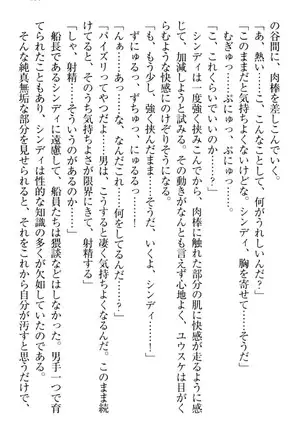 の谷間に、肉棒を差しこんでいく。
「あ、熱い……こ、こんなことして、何がうれしいんだ？」
「このままだと気持ちよくないけどな。シンディ、胸を寄せて……そうだ」
むぎゅっ……ぷにゅっ、ぷにゅ……。
「これくらいでいいのか……？」
シンディは一度強く挟みこんでから、肉棒に触れた部分の肌に快感が走るように感
じて、加減しようと試みる。その動きがなんとも言えず心地よく、ユウスケは目がく
らむような快感にのけぞりそうになる。
「も、もう少し、強く挟んだまま……そうだ、いくよ、シンディ……！」
ずにゅるっ……ずちゅっ、にゅるるっ……！
「んぁ……あっ……な、なんだこれ……何をしてるんだ……！」
「パイズリってやつだよ……男は、こうすると凄く気持ちよくなるんだ。このまま続
けていると、そのうち気持ちよさが限界にきて、射精する」
「しゃ、射精……そういうのがあるのか……？」
船長であるシンディに遠慮して、船員たちは猥談などはしなかった。男手一つで育
てられたこともあり、シンディは性的な知識の多くが欠如していたのである。
そんな純真無垢な部分を見せられると、それをこれから自分が汚すと思うだけで、